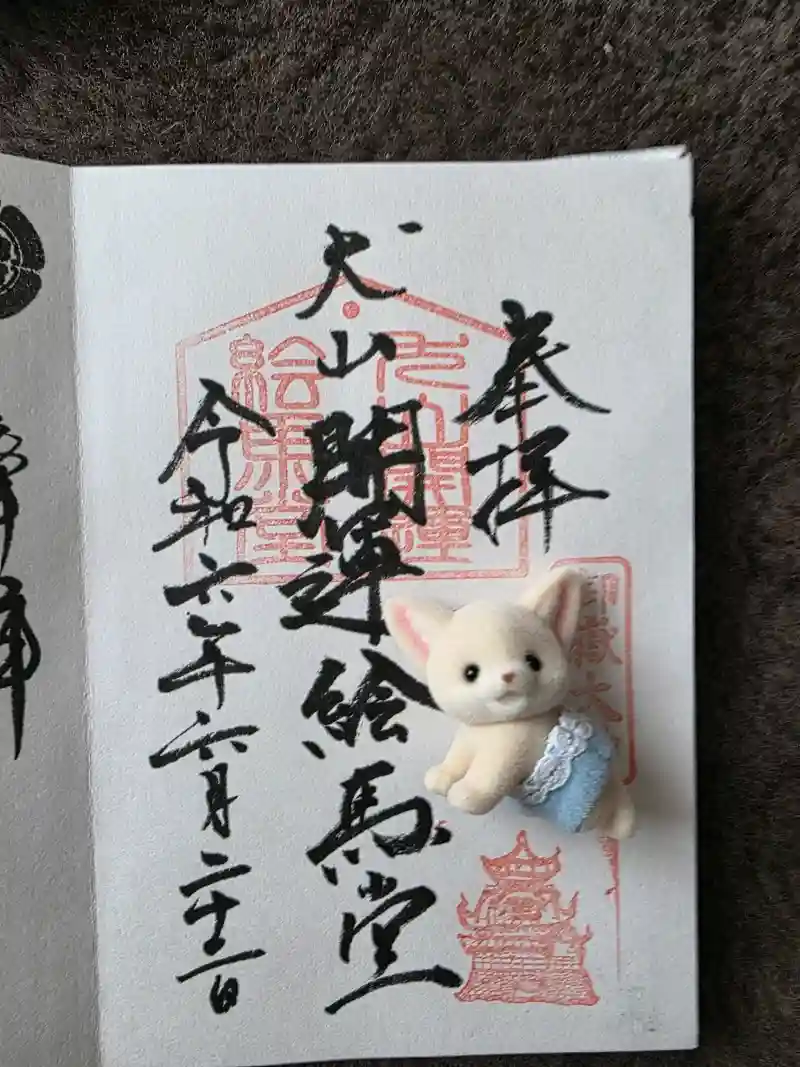 奉拝
犬山開運絵馬堂
令和六年六月二十二日
犬山開運
絵馬堂
御嶽大